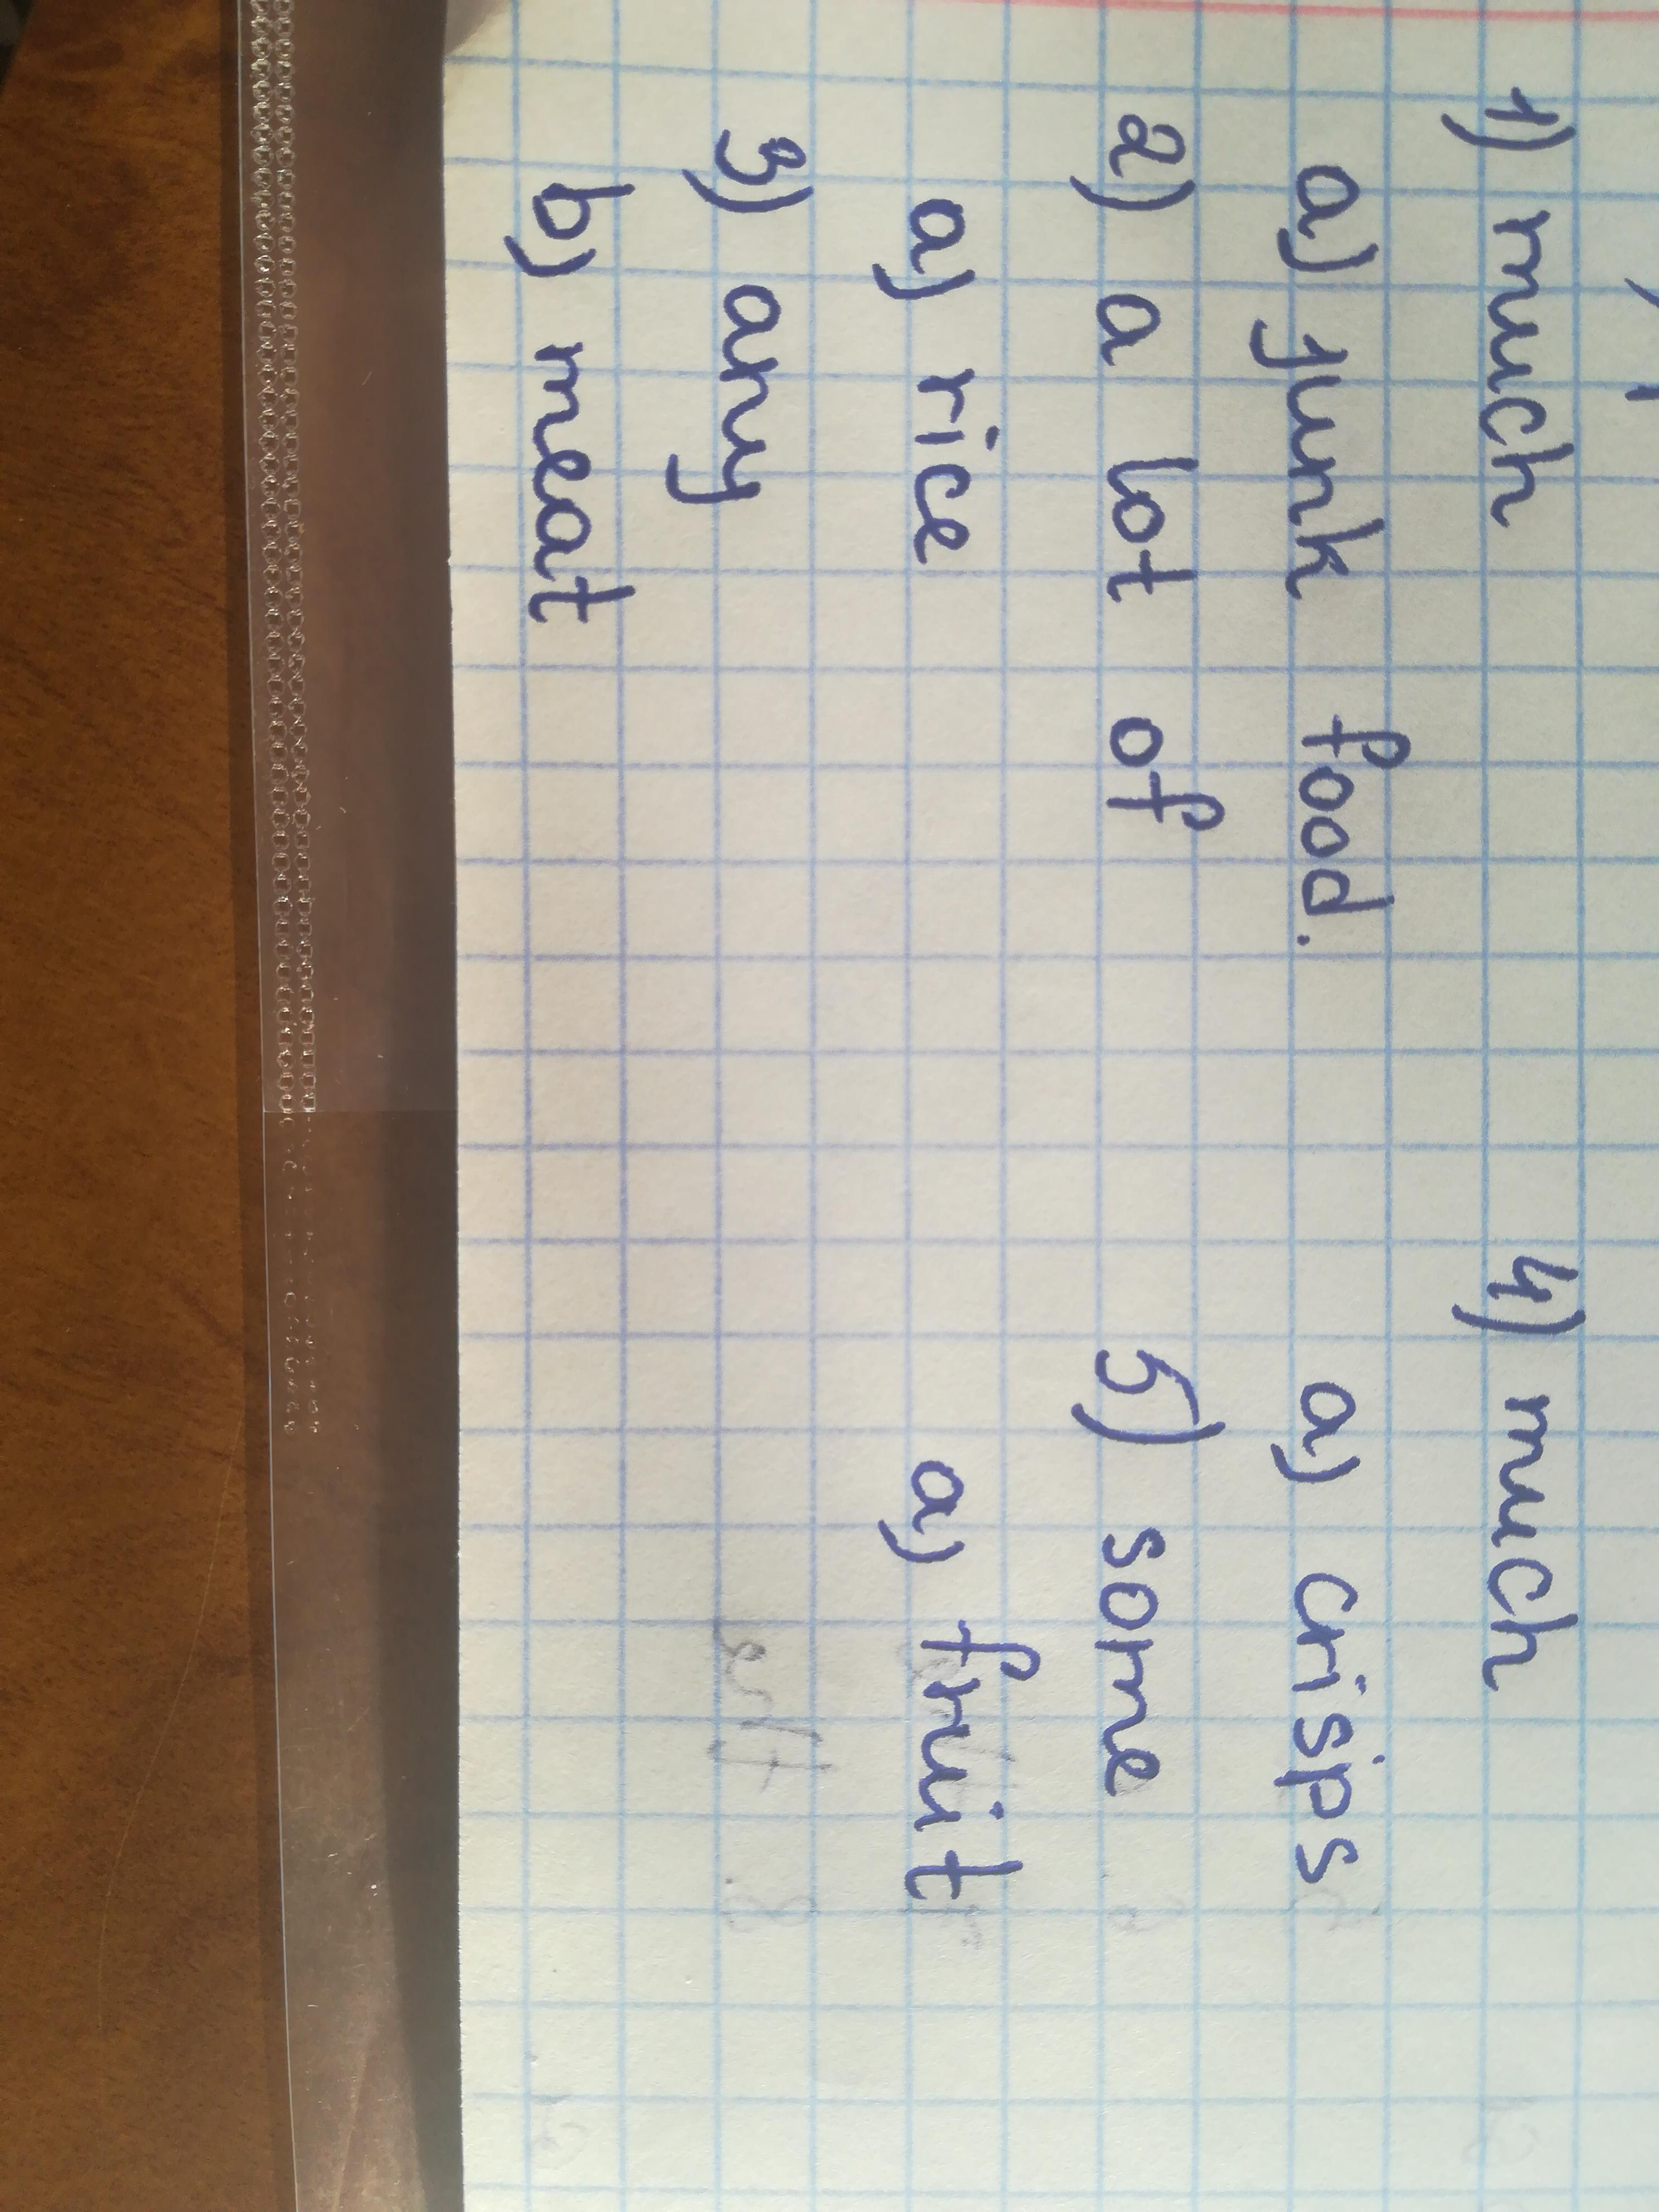 1) much
a) junk food.
2) a lot of
a) rice
3) any
b) meat
4) much
a) crisps
5) some
a) fruit